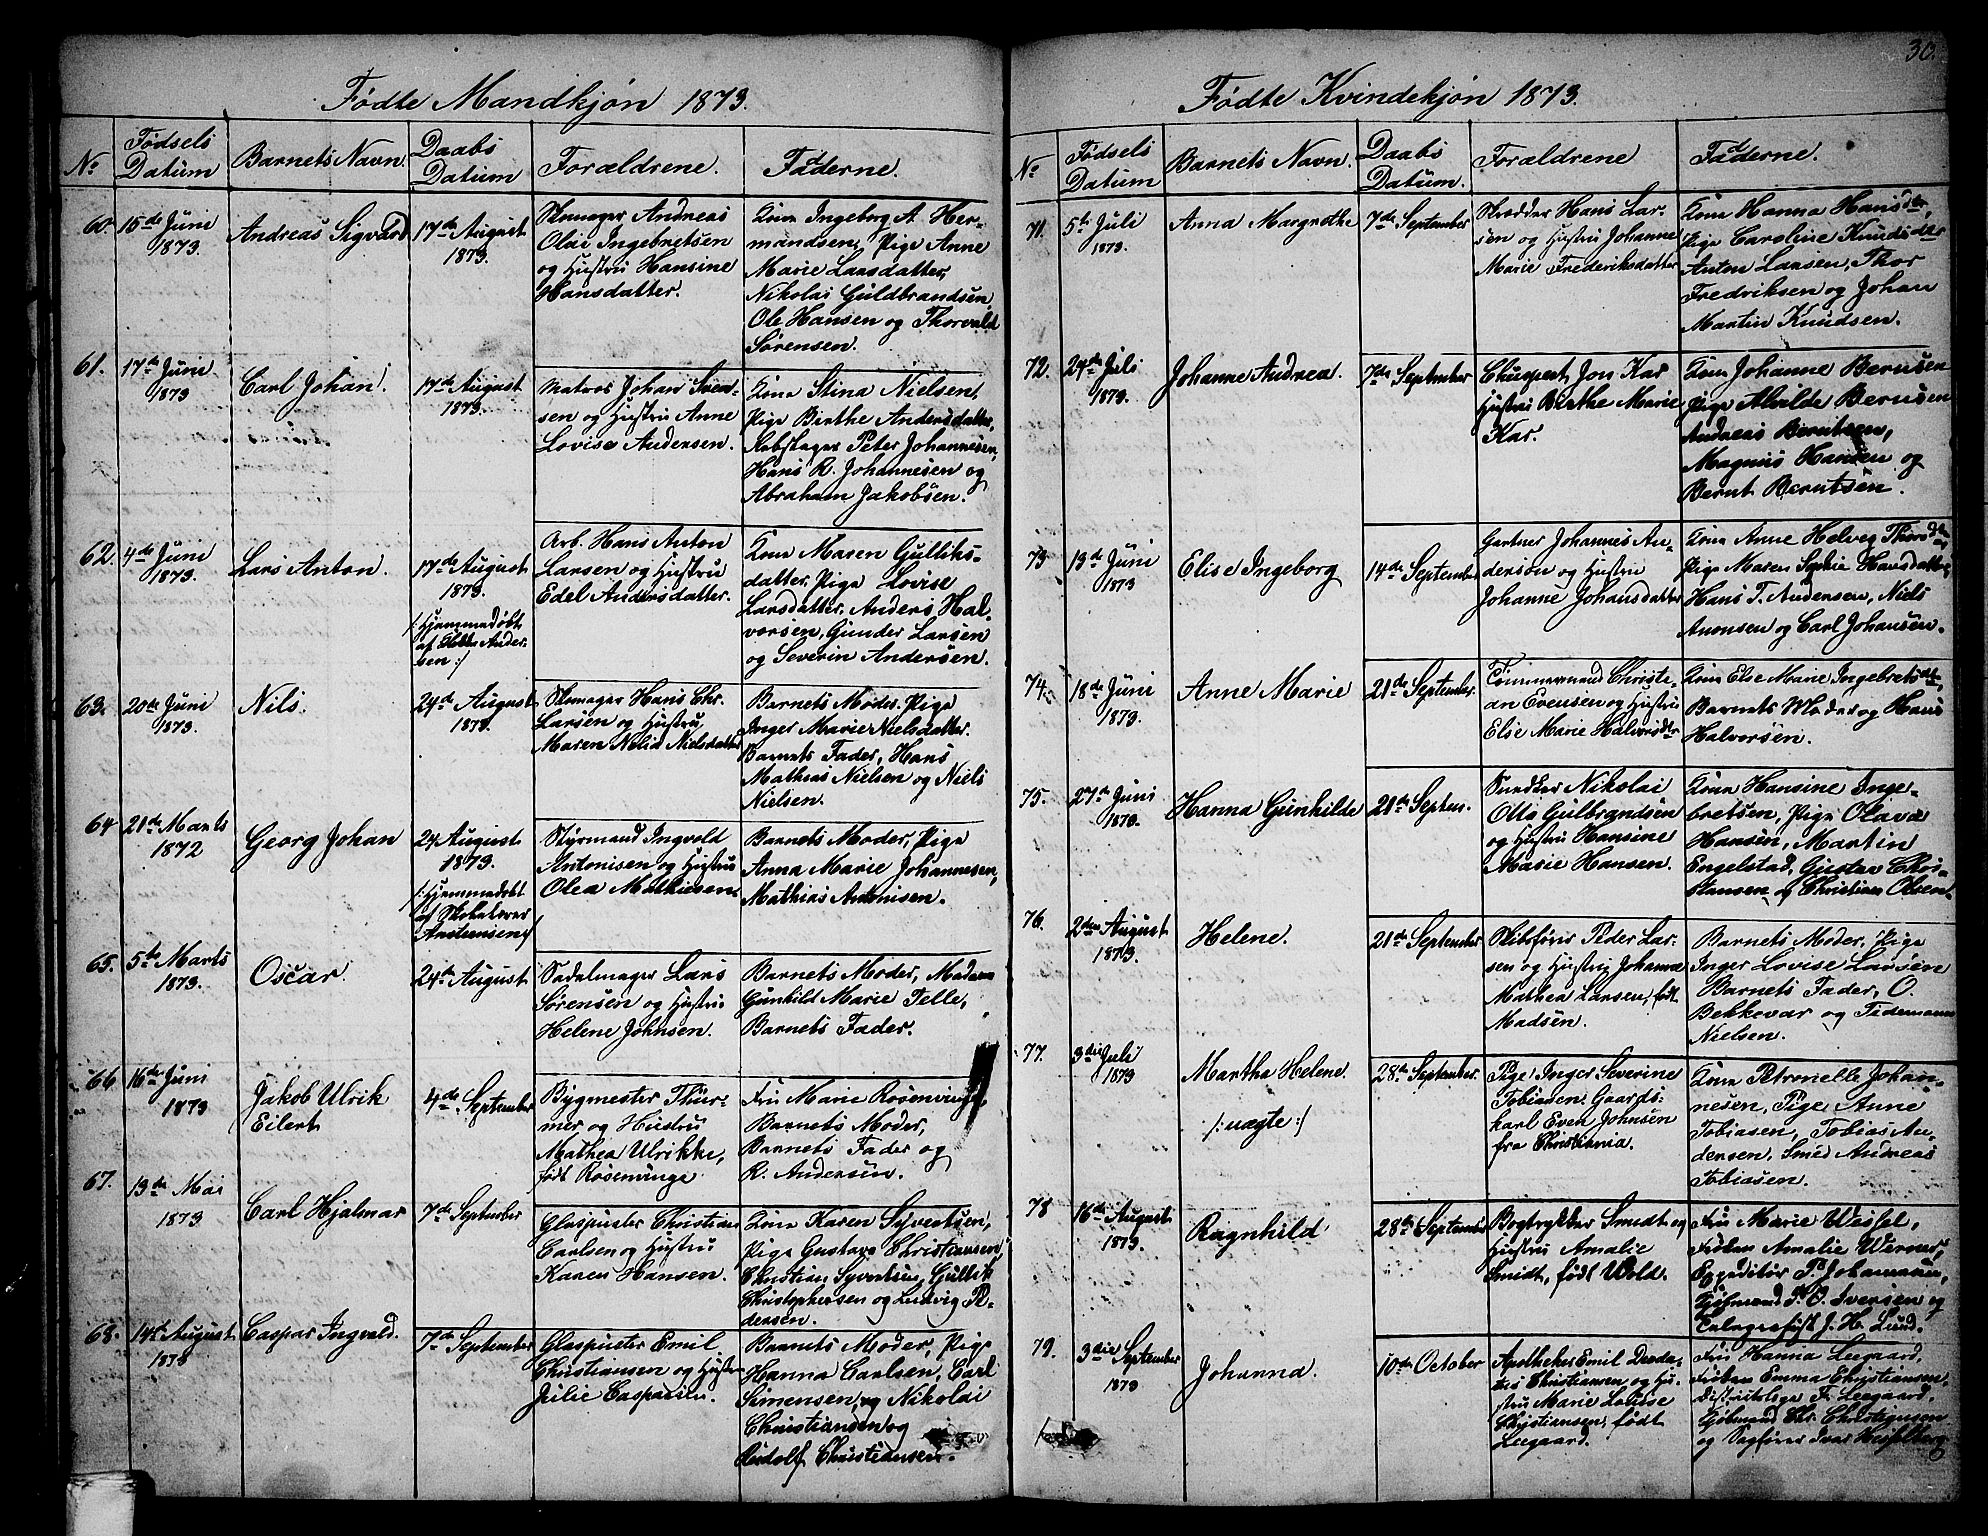 30.
Fødte Mandkjøn 1873.
No
Fødsels
Datum
Barnets Navn.
Daabs
Datum
Forældrene.
Fadderne.
60.
15de Juni
1873.
Andreas Sigvard
17de August
1873.
Skomager Andreas
Olai Ingebretsen
og Hustru Hansine
Hansdatter.
Kone Ingeborg A. Her-
mandsen, Pige Anne
Marie Larsdatter,
Nikolai Guldbrandsen,
Ole Hansen og Thorvald
Sørensen.
61.
17de Juni
1873
Carl Johan.
17de August
1873.
Matros Johan Sven-
sen og Hustru Anne
Lovise Andersen.
Kone Stina Nielsen,
Pige Berthe Andersdatter,
Rebslager Peter Johannesen,
Hans R. Johannesen og
Abraham Jakobsen.
62.
4de Juni
1873.
Lars Anton.
17de August
1873.
/: Hjemmedøbt
af Ander-
sen :/
Arb. Hans Anton
Larsen og Hustru
Edel Andersdatter.
Kone Maren Gulliks-
datter, Pige Lovise
Larsdatter, Anders Hal-
vorsen, Gunder Larsen
og Severin Andersen.
63.
20de Juni
1873.
Nils.
24de August
1873.
Skomager Hans Chr.
Larsen og Hustru
Maren Nielsdatter
Barnets Moder, Pige
Inger Marie Nielsdatter.
Barnets Fader, Hans
Mathias Nielsen og Niels
Nielsen.
64
21de Marts
1872
Georg Johan
24 August
1873.
/: Hjemmedøbt
af
:/
Styrmand Ingvald
Antonisen og Hustru
Olea Mathisen.
Barnets Moder, Pige
Anna Marie Johannesen,
Mathias Antonisen.
65.
5te Marts
1873.
Oscar.
24de August
Sadelmager Lars
Sørensen og Hustru
Helene Johnsen.
Barnets Moder, Madam
Gunhild Marie Telle,
Barnets Fader.
66
16de Juni
1873
Jakob Ulrik
Eilert
4de September
Bygmester Thur-
mer og Hustru
Mathea Ulrikke,
født Rosenvinge
Fru Marie Rosenvinge
Barnets Moder,
Barnets Fader og
R. Andersen.
67.
13de Mai
1873
Carl Hjalmar
7de September
Glaspuster Christian
Carlsen og Hustru
Karen Hansen.
Kone Karen Syvertsen,
Pige Gustava Christiansen,
Christian Syvertsen, Gullik
Christophersen og Ludvig Pe-
dersen.
68.
14de August
1873
Caspar Ingvald.
7de September
Glaspuster Emil
Christiansen og Hustru
Julie Caspersen.
Barnets Moder, Pige
Hanna Carlsen, Carl
Simensen, og Nikolai
Christiansen og
Rudolf Christiansen.
Fødte Kvindekjøn 1873.
No
Fødsels
Datum
Barnets Navn.
Daabs
Datum.
Forældrene
Fadderne.
71.
5te Juli
1873.
Anna Margrethe
7de September
Skrædder Hans Lar-
sen og Hustru Johanne
Marie Frederiksdatter
Kone Hanna Hansdtr,
Pige Caroline Knudsdtr
Anton Larsen, Thor
Fredriksen og Johan
Martin Knudsen.
72.
24de Juli
1873.
Johanne Andrea.
7de September
Jon Kar
Hustru Birthe Marie
Kar.
Kone Johanne Bernsen
Pige Alvilde Bernsen
Andreas Berntsen,
Magnus Hansen og
Bernt Berntsen.
73
13de Juni
1873
Elise Ingeborg
14de September
Gartner Johannes An-
dersen og Hustru
Johanne Johansdatter
Kone Anne Helvig
Pige Maren Sophie Hansdatter,
Hans T. Andersen, Niels
Anonsen og Carl Johansen.
74.
18de Juni
1873.
Anne Marie
21de September.
Tømmermand Christi-
an Evensen og Hustru
Else Marie Halvorsdtr
Kone Else Marie Ingebretsdtr,
Barnets Moder og Hans
Halvorsen.
75.
27de Juni
1873.
Hanna Gunhilde
21de Septem.
Snedker Nikolai
Otto Gulbrandsen
og Hustru Hansine
Marie Hansen.
Kone Hansine Inge-
bretsen, Pige Olava
Hansen, Martin
Engelstad, Gustav Chri-
stiansen og Christian Olsen.
76.
2den August
1873.
Helene.
21de September
Skibsfører Peder Lar-
sen og Hustru Johanne
Mathea Larsen, født
Madsen.
Barnets Moder, Pige
Inger Lovise Larsen
Barnets Fader, O.
Bekkevar og Tidemann
Nielsen.
77.
3die Juli
1873
Martha Helene.
/: uægte :/
28de September.
Pige Inger Severine
Tobiasen, Gaards-
karl Even Johnsen
fra Christiania.
Kone Petronelle Johan-
nesen, Pige Anne
Tobiasen, Tobias An-
dersen, Smed Andreas
Tobiasen.
78
16de August
1873.
Ragnhild
28de September
Bogtrykker Smidt og
Hustru Amalie
Smidt, født Wold.
Fru Marie Wessel,
Frøken Amalie Werner,
Expeditør P. Johannesen,
Kjøbmand P. O. Iversen og
J. H. Lund.
79.
3die September
1873
Johanna.
10de October
Apotheker Emil Deoda-
tus Christiansen, og Hu-
stru Marie Louise
Christiansen, født
Leegaard.
Fru Hanna Leegaard,
Frøken Emma Christiansen,
Distriktslæge F. Leegaard,
Kjøbmand Chr. Christiansen
og Sagfører Ivar Hesselberg